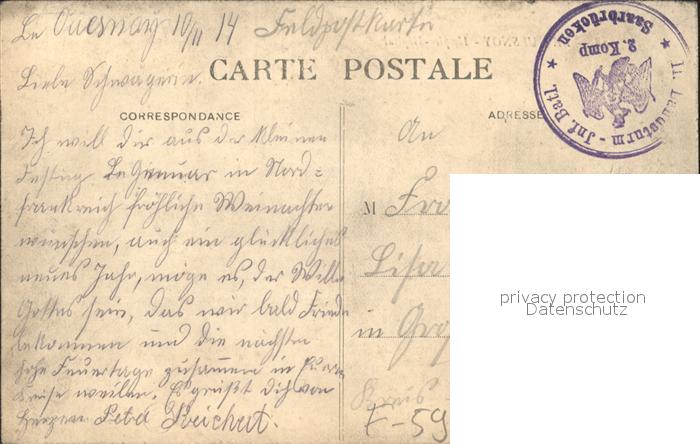 Le Quesnoy 10/11 14 Feldpostkarte
Liebe Schwägerin.
CARTE POSTALE
CORRESPONDANCE
ADRESSE
II. Landsturm - Inf. Batl.
Saarbrücken
2. Komp
Ich will dir aus der kleinen
Festung in Nord=
frankreich fröhliche Weinachten
wünschen, auch ein glückliches
neues Jahr, möge es, der Wille
Gottes sein, das wir bald Friede
bekommen und die nächsten
hohe Feuertage zusammen in
Kreise weilen. Es grüßt dich von
Herzen Peter Reichert.
An
M
Lisa
in
Kreis
F-59
privacy protection
Datenschutz